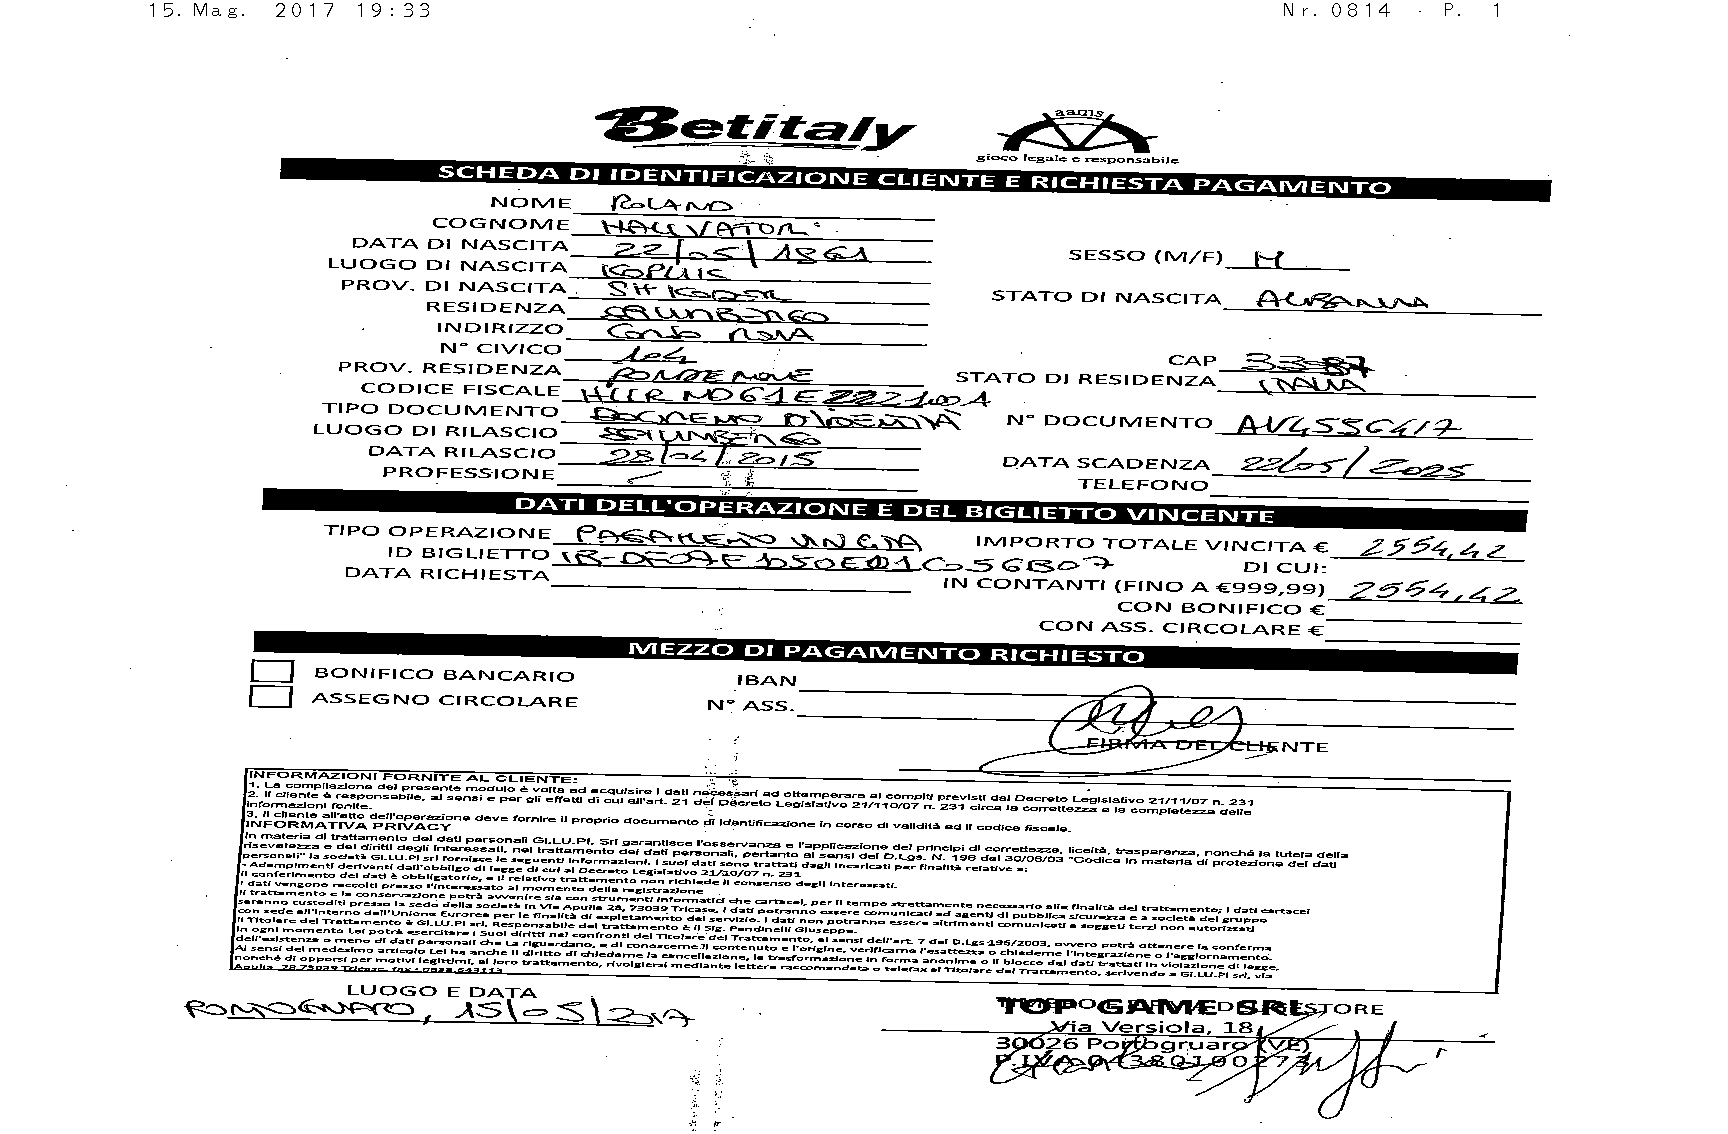 15. Mag. 2017 19:33 Nr. 0814 P. 1
Betitaly
aams
gioco legale e responsabile
SCHEDA DI IDENTIFICAZIONE CLIENTE E RICHIESTA PAGAMENTO
NOME ROLAND
COGNOME
DATA DI NASCITA 22/05/1961 SESSO (M/F) M
LUOGO DI NASCITA KOPLIK
PROV. DI NASCITA SHKODER STATO DI NASCITA ALBANIA
RESIDENZA SPILIMBERGO
INDIRIZZO CORSO ROMA
N° CIVICO 104 CAP
PROV. RESIDENZA PORDENONE STATO DI RESIDENZA ITALIA
CODICE FISCALE
TIPO DOCUMENTO N° DOCUMENTO
LUOGO DI RILASCIO SPILIMBERGO
DATA RILASCIO 28/04/2015 DATA SCADENZA 22/05/2025
PROFESSIONE TELEFONO
DATI DELL'OPERAZIONE E DEL BIGLIETTO VINCENTE
TIPO OPERAZIONE IMPORTO TOTALE VINCITA € 2554,42
ID BIGLIETTO DI CUI:
DATA RICHIESTA IN CONTANTI (FINO A €999,99) 2554,42
CON BONIFICO €
CON ASS. CIRCOLARE €
MEZZO DI PAGAMENTO RICHIESTO
BONIFICO BANCARIO IBAN
ASSEGNO CIRCOLARE N° ASS.
FIRMA DEL CLIENTE
INFORMAZIONI FORNITE AL CLIENTE:
1. La compilazione del presente modulo è volta ad acquisire i dati necessari ad ottemperare ai compiti previsti dal Decreto Legislativo 21/11/07 n. 231
2. Il cliente è responsabile, ai sensi e per gli effetti di cui all'art. 21 del Decreto Legislativo 21/110/07 n. 231 circa la correttezza e la completezza delle
informazioni fonite.
3. Il cliente all'atto dell'operazione deve fornire il proprio documento di identificazione in corso di validità ed il codice fiscale.
INFORMATIVA PRIVACY
In materia di trattamento dei dati personali GI.LU.PI. Srl garantisce l'osservanza e l'applicazione dei principi di correttezza, liceità, trasparenza, nonché la tutela della
riservatezza e dei diritti degli interessati, nel trattamento dei dati personali, pertanto ai sensi del D.Lgs. N. 196 del 30/06/03 "Codice in materia di protezione dei dati
personali" la società GI.LU.PI srl fornisce le seguenti informazioni. I suoi dati sono trattati dagli incaricati per finalità relative a:
- Adempimenti derivanti dall'obbligo di legge di cui al Decreto Legislativo 21/10/07 n. 231
Il conferimento dei dati è obbligatorio, e il relativo trattamento non richiede il consenso degli interessati.
I dati vengono raccolti presso l'interessato al momento della registrazione
Il trattamento e la conservazione potrà avvenire sia con strumenti informatici che cartacei, per il tempo strettamente necessario alle finalità del trattamento; i dati cartacei
saranno custoditi presso la sede della società in Via Apulia 28, 73039 Tricase. I dati potranno essere comunicati ad agenti di pubblica sicurezza e a società del gruppo
con sede all'interno dell'Unione Europea per le finalità di espletamento del servizio. I dati non potranno essere altrimenti comunicati a soggetti terzi non autorizzati
Il Titolare del Trattamento è GI.LU.PI srl, Responsabile del trattamento è il Sig. Pandinelli Giuseppe.
In ogni momento Lei potrà esercitare i Suoi diritti nei confronti del Titolare del Trattamento, ai sensi dell'art. 7 del D.Lgs 196/2003, ovvero potrà ottenere la conferma
dell'esistenza o meno di dati personali che La riguardano, e di conoscerne il contenuto e l'origine, verificarne l'esattezza o chiederne l'integrazione o l'aggiornamento.
Ai sensi del medesimo articolo Lei ha anche il diritto di chiederne la cancellazione, la trasformazione in forma anonima o il blocco dei dati trattati in violazione di legge,
nonché di opporsi per motivi legittimi, al loro trattamento, rivolgersi mediante lettera raccomandata o telefax al Titolare del Trattamento, scrivendo a GI.LU.PI srl, via
Apulia, 28 73039 Tricase, fax
LUOGO E DATA
15/05/2017
TOP GAME SRL
Via Versiola, 18
30026 Portogruaro (VE)